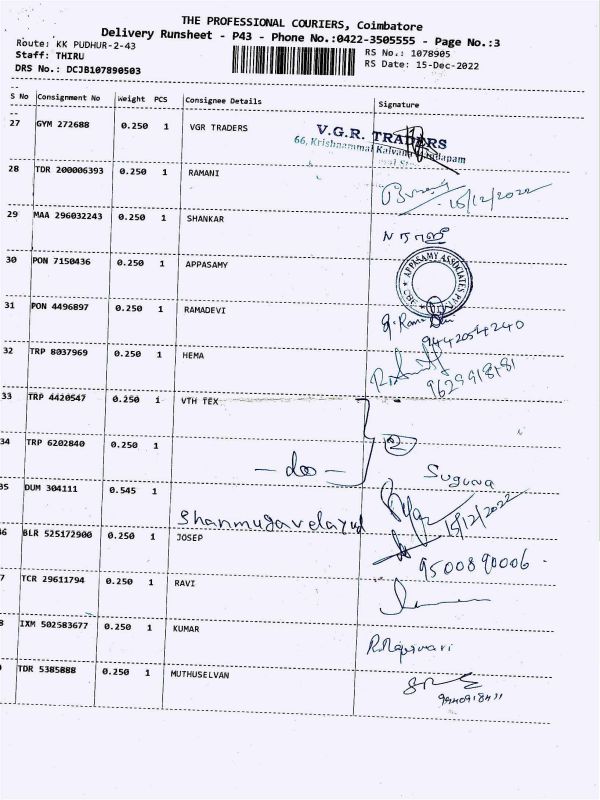 THE PROFESSIONAL COURIERS, Coimbatore
Delivery Runsheet - P43 - Phone No.:0422-3505555 - Page No.:3
Route: KK PUDHUR-2-43 RS No.: 1078905
Staff: THIRU RS Date: 15-Dec-2022
DRS No.: DCJB107890503
S No Consignment No Weight PCS Consignee Details Signature
27 GYM 272688 0.250 1 VGR TRADERS V.G.R. TRADERS
66, Krishnammal Kalyana Mandapam
28 TDR 200006393 0.250 1 RAMANI
15/12/2022
29 MAA 296032243 0.250 1 SHANKAR
30 PON 7150436 0.250 1 APPASAMY APPASAMY ASSOCIATES PVT
31 PON 4496897 0.250 1 RAMADEVI
9442054240
32 TRP 8037969 0.250 1 HEMA
9629918481
33 TRP 4420547 0.250 1 VTH TEX
34 TRP 6202840 0.250 1
- do -
Suguna
35 DUM 304111 0.545 1
15/12/2022
Shanmugavelayud
36 BLR 525172900 0.250 1 JOSEP
9500890006
7 TCR 29611794 0.250 1 RAVI
8 IXM 502583677 0.250 1 KUMAR
TDR 5385888 0.250 1 MUTHUSELVAN